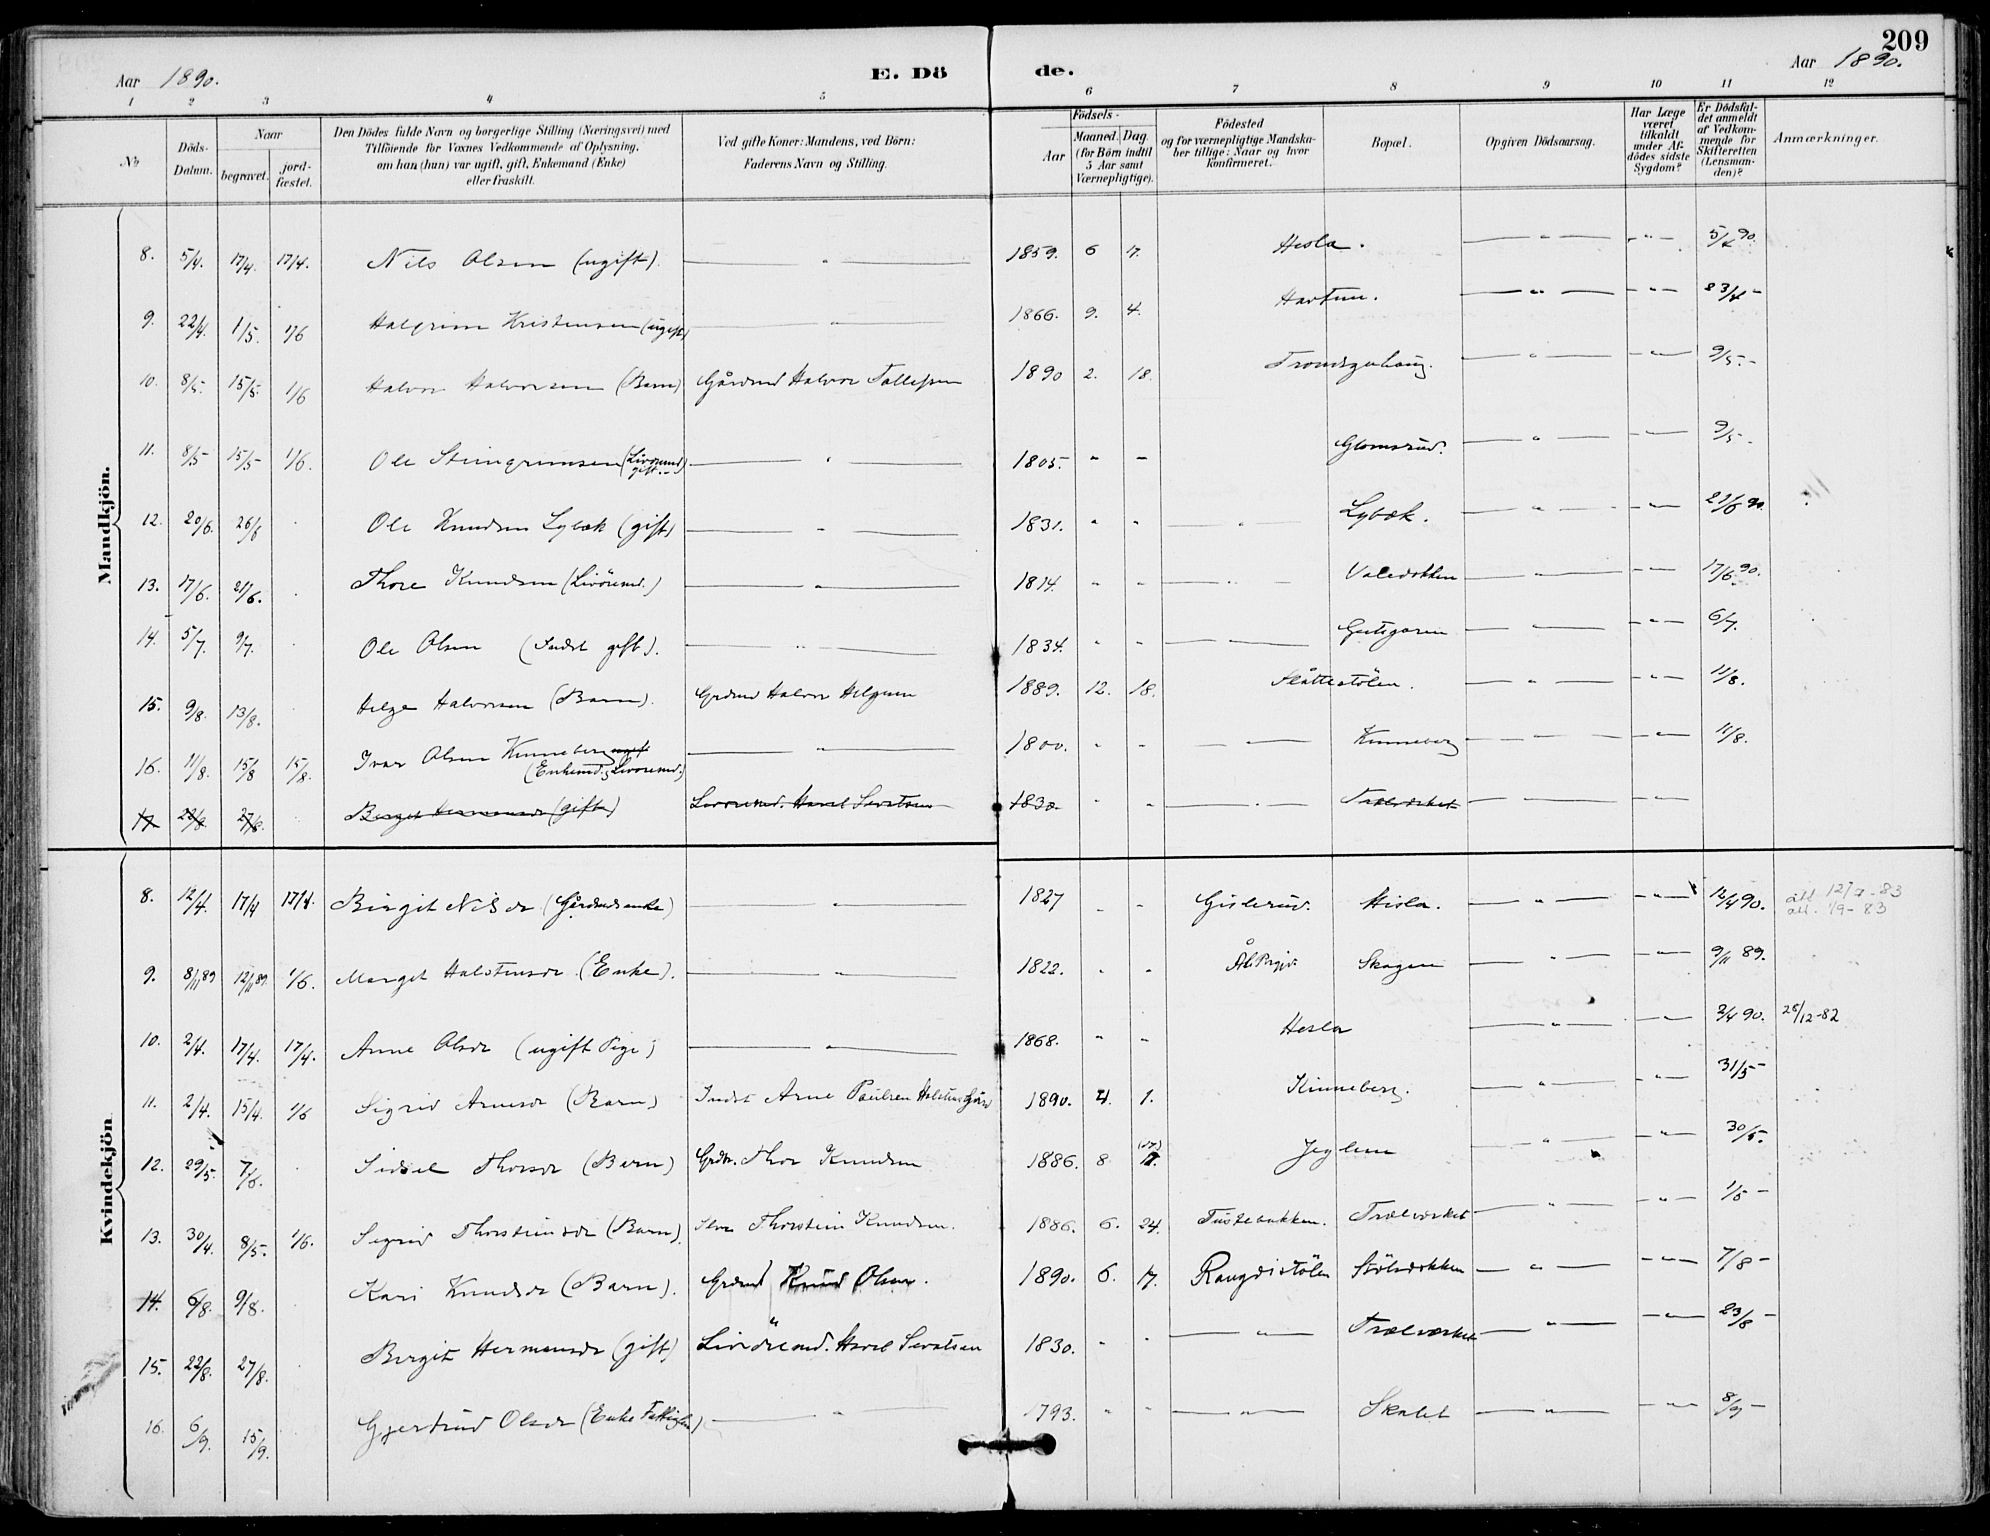 209
Aar 1890. E. Dö de. Aar 1890.
1 2 3 4 5 6 7 8 9 10 11 12
No
Döds-Datum.
Naar
begravet.
jord-fæstet.
Den Dödes fulde Navn og borgerlige Stilling (Næringsvei) med
Tilföiende for Voxnes Vedkommende af Oplysning,
om han (hun) var ugift, gift, Enkemand (Enke)
eller fraskilt.
Ved gifte Koner: Mandens, ved Börn:
Faderens Navn og Stilling.
Födsels-
Aar
Maaned.
Dag.
(for Börn indtil
5 Aar samt
Værnepligtige).
Födested
og for værnepligtige Mandska-
ber tillige: Naar og hvor
konfirmeret.
Bopæl.
Opgiven Dödsaarsag.
Har Læge
været
tilkaldt
under Af-
dödes sidste
Sygdom?
Er Dödsfal-
det anmeldt
af Vedkom-
mende for
Skifteretten
(Lensman-
den)?
Anmærkninger.
Mandkjön.
8. 5/4. 17/4. 17/4. Nils Olsen (ugift). — " — 1859. 6 7. Hesla. — " — — " — 5/4 90.
9. 22/4. 1/5. 1/6 Halgrim Kristensen (ugift) — " — 1866. 9. 4. — " — — " — 23/4 -
10. 8/5. 15/5. 1/6 Halvor Halvorsen (Barn) Gårdmd Halvor Tollefsen 1890 2. 18. — " — — " — 9/5. -
11. 8/5 15/5 1/6. Ole Steingrimsen (Livöremd) gift. — " — 1805. " — Glomsrud. — " — — " — 9/5 -
12. 20/6. 26/6 Ole Knudsen Lybæk (gift) — " — 1831. " " " Lybæk. — " — — " — 21/6 90.
13. 17/6. 21/6. Thore Knudsen (Livöremd.) — " — 1814. " " — " — — " — — " — 17/6 90.
14. 5/7. 9/7. Ole Olsen (Indst gift). — " — 1834. " " — — — " — — " — 6/7.
15. 9/8. 13/8. Helge Halvorsen (Barn). Grdmd Halvor Helgesen 1889. 12. 18. Slåttestölen. — " — — " — 11/8.
16. 11/8. 15/8 15/8. Ivar Olsen Kinneberg ugift (Enkemd., Livöremd.) — " — 1800. " " — " — Kinneberg — — — " — 11/8.
17 22/8 27/8. Birgit Hermansdr (gift) Livöremd. Havel Sevatsen 1830. " " — " — Trælværket — — —
Kvindekjön
8. 12/4. 17/4 17/4. Birgit Nilsdr (Gårdmdsenke) — " — 1827 " " Gislerud. Hesla. — " — — " — 12/4 90. 12/7 - 83
att. 1/9 - 83
9. 8/11 89 12/11 89. 1/6. Margit Halstensdr (Enke). — " — 1822. " " Skogen — " — — " — 9/11 89.
10. 2/4. 17/4. 17/4. Anne Olsdr (ugift Pige) — " — 1868. " " Hesla — " — — " — 2/4 90. 28/12-82
11. 2/4. 15/4. 1/6 Sigrid Arnesdr (Barn) Indst Arne Paulsen 1890. 4. 1. Kinneberg. — " — — " — 31/5 -
12. 29/5. 7/6. Sidsel Thorsdr (Barn) Grdbr. Thor Knudsen 1886. 8 (17) Jeglum — " — — " — 30/5.
13. 30/4. 8/5. 1/6. Sigrid Thorsteinsdr (Barn). Thorstein Knudsen. 1886. 6. 24. Tustebakken. Trælværket — " — — " — 1/5 -
14. 6/8. 9/8. Kari Knudsdr (Barn). Grdmd Knud Olsen. 1890. 6. 17. Raugdistölen Stölsdokken — " — — " — 7/8 -
15. 22/8. 27/8. Birgit Hermansdr (gift) Livöremd. Havel Sevatsen 1830. " " — " — Trælværket — " — — " — 23/8 -
16. 6/9. 15/9. Gjertrud Olsdr (Enke Fattiglem) — " — 1793. " " — " — Skalet — " — — " — 8/9 -